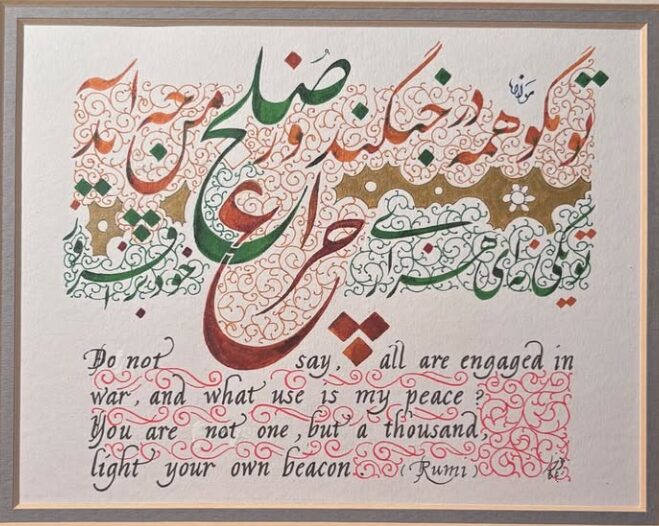 مولانا
تو مگو همه در جنگند و ز صلح من چه آید
تو یکی نه ای هزاری چراغ خود برافروز
Do not say, all are engaged in
war, and what use is my peace?
You are not one, but a thousand,
light your own beacon. (Rumi)